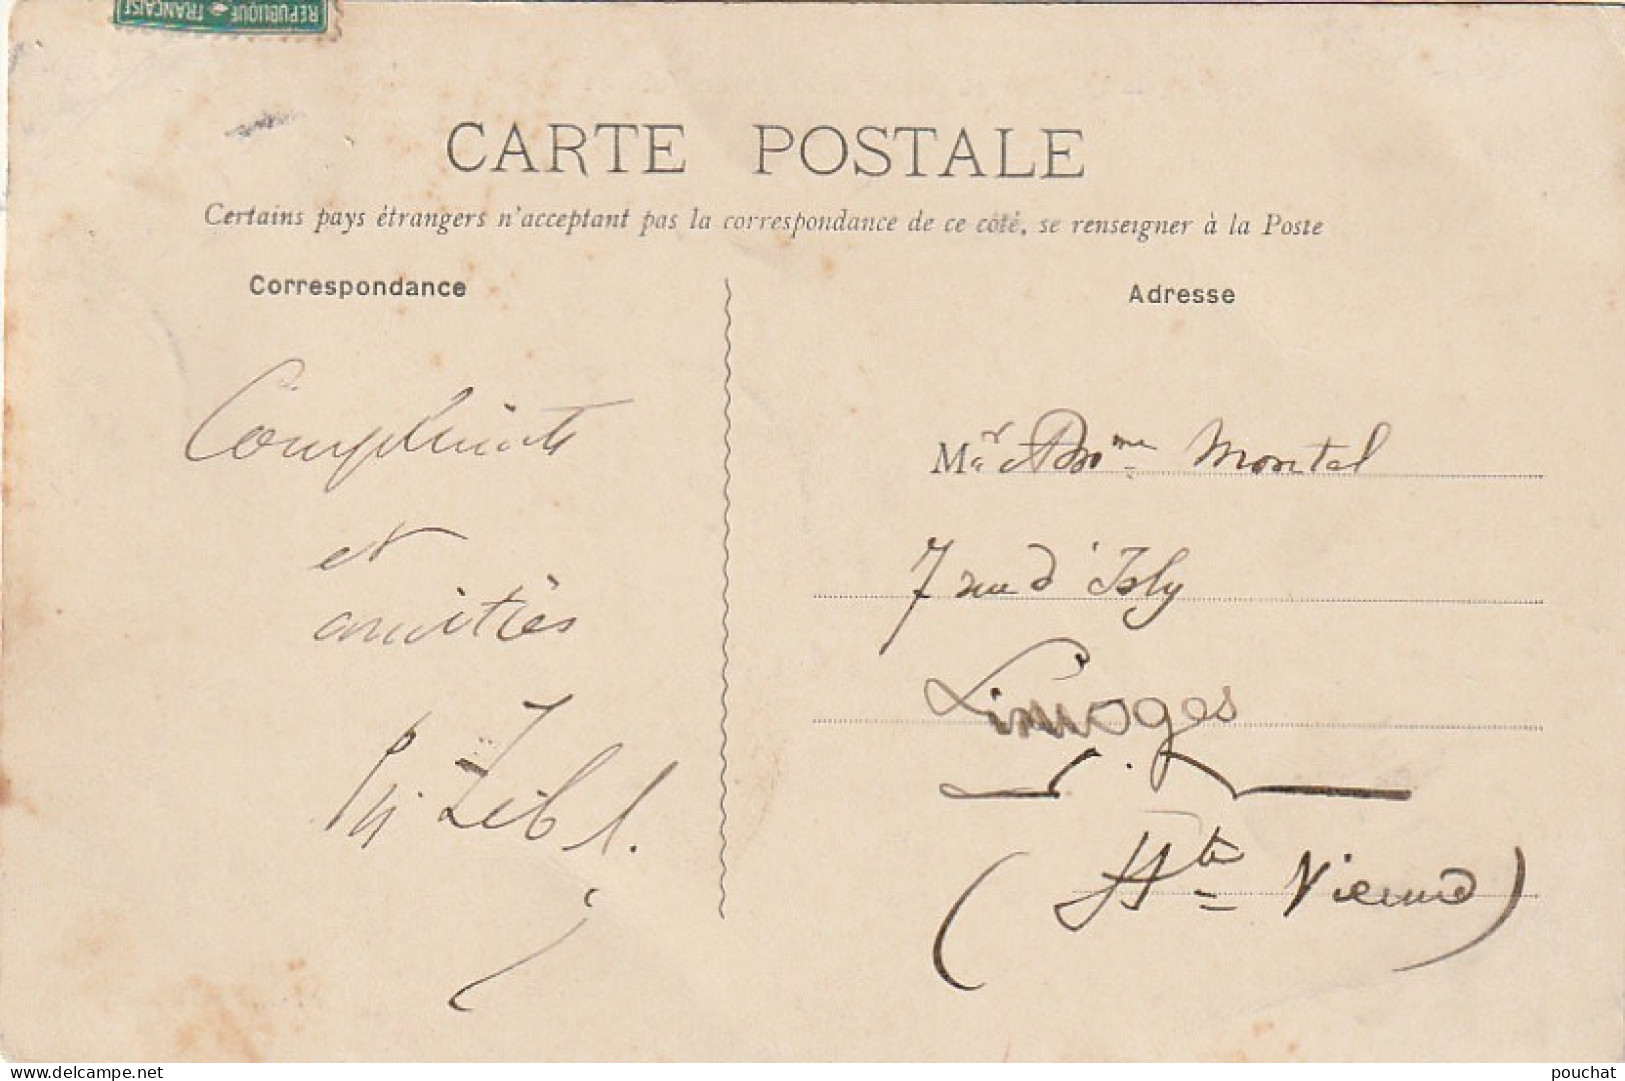 RÉPUBLIQUE FRANÇAISE
CARTE POSTALE
Certains pays étrangers n'acceptant pas la correspondance de ce côté, se renseigner à la Poste
Correspondance
Compliments
et
amitiés
Adresse
Mr Mme Montel
7 rue d'Isly
Limoges
(Hte Vienne)
www.delcampe.net
pouchat